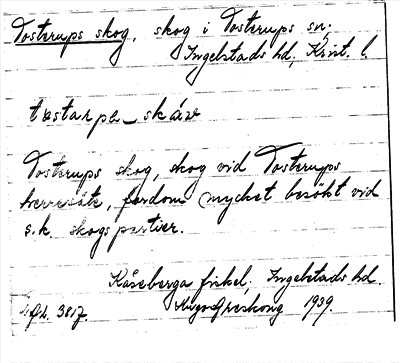 Tosterups skog, skog i Tosterups sn;
Ingelstads hd; Krist. l.
tostarpa_skåɜ
Tosterups skog, skog vid Tosterups
herresäte, fordom mycket besökt vid
s.k. skogspartier.
Kåseberga fiskel; Ingelstads hd.
3817. 1939.